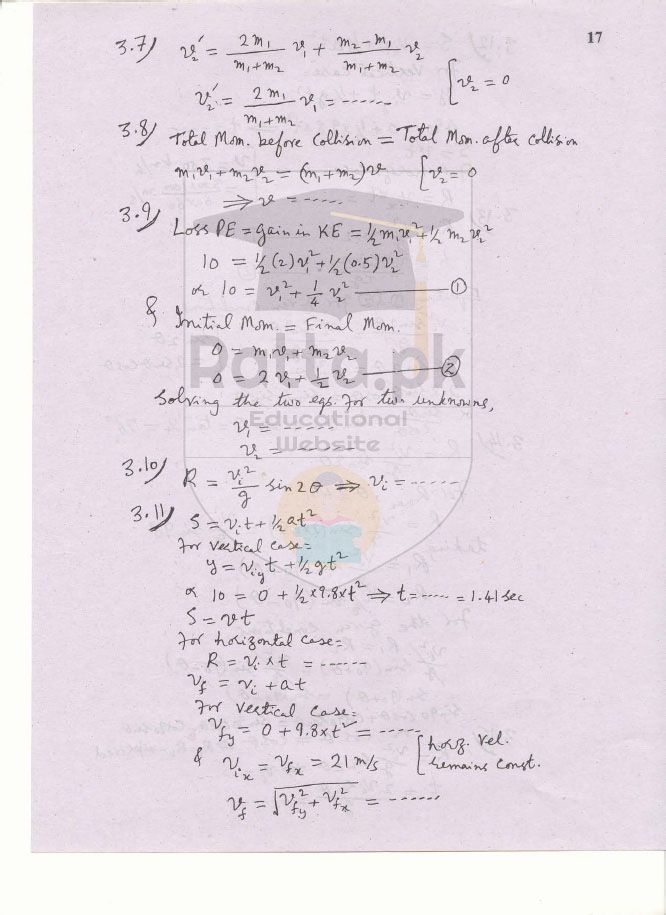 17
3.7) v₂′ = 2m₁/(m₁+m₂) v₁ + (m₂−m₁)/(m₁+m₂) v₂
v₂′ = 2m₁/(m₁+m₂) v₁ = ------ [v₂ = 0
3.8) Total Mom. before collision = Total Mom. after collision
m₁v₁ + m₂v₂ = (m₁+m₂)v [v₂ = 0
⇒ v = ------
3.9) Loss PE = gain in KE = ½m₁v₁² + ½ m₂v₂²
10 = ½(2)v₁² + ½(0.5)v₂²
or 10 = v₁² + ¼ v₂² ——— ①
& Initial Mom. = Final Mom.
0 = m₁v₁ + m₂v₂
0 = 2v₁ + ½v₂ ——— ②
Solving the two eqs. for two unknowns,
v₁ = ------
v₂ = ------
Ratta.pk
Educational
Website
3.10) R = vᵢ²/g sin2θ ⇒ vᵢ = ------
3.11) S = vᵢt + ½at²
For vertical case=
y = vᵢyt + ½gt²
or 10 = 0 + ½×9.8×t² ⇒ t = ------ = 1.41 sec
S = vt
For horizontal case=
R = vᵢ×t = ------
vf = vᵢ + at
For vertical case=
vfy = 0 + 9.8×t = ------
& vᵢₓ = vfₓ = 21 m/s [horiz. vel. remains const.
vf = √(vfy² + vfx²) = ------